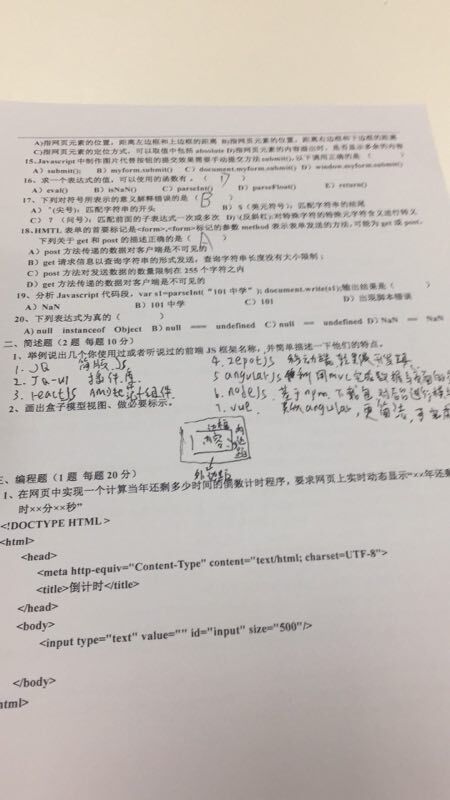 A)指网页元素的位置，距离左边框和上边框的距离 B)指网页元素的位置，距离右边框和下边框的距离
C)指网页元素的定位方式，可以取值中包括 absolute D)指网页元素的内容溢出时，是否显示多余的内容
15、Javascript 中制作图片代替按钮的提交效果需要手动提交方法 submit(),以下调用正确的是（ ）
A) submit(); B) myform.submit() C) document.myform.submit() D) window.myform.submit()
16、求一个表达式的值，可以使用的函数有。（ D ）
A) eval() B) isNaN() C) parseInt() D) parseFloat() E) return()
17、下列对符号所表示的意义解释错误的是（ B ）
A) ^(尖号)：匹配字符串的开头 B) $ (美元符号)：匹配字符串的结尾
C) ？ (问号)：匹配前面的子表达式一次或多次 D)\(反斜杠):对特殊字符的特殊元字符含义进行转义
18、HMTL 表单的首要标记是<form>,<form>标记的参数 method 表示表单发送的方法,可能为 get 或 post,
下列关于 get 和 post 的描述正确的是（ A ）
A) post 方法传递的数据对客户端是不可见的
B) get 请求信息以查询字符串的形式发送，查询字符串长度没有大小限制；
C) post 方法对发送数据的数量限制在 255 个字符之内
D) get 方法传递的数据对客户端是不可见的
19、分析 Javascript 代码段, var s1=parseInt("101 中学"); document.write(s1);输出结果是（ ）
A) NaN B) 101 中学 C) 101 D) 出现脚本错误
20、下列表达式为真的（ ）
A) null instanceof Object B) null === undefined C) null == undefined D) NaN == NaN
二、简述题（2 题 每题 10 分）
1、举例说出几个你使用过或者听说过的前端 JS 框架名称，并简单描述一下他们的特点。
1. JQ 简版JS
4. zepotjs 移动端
2. JQ-ui 插件库
5 angularJs 便利用mvc
3. reactJs 组件
6. nodeJs 基于npm 下载包
2、画出盒子模型视图、做必要标示。
7. vue 类似angular, 更简洁,
边框
内容
外边距
三、编程题（1 题 每题 20 分）
1、在网页中实现一个计算当年还剩多少时间的倒数计时程序，要求网页上实时动态显示“××年还剩
时××分××秒”
<!DOCTYPE HTML >
<html>
<head>
<meta http-equiv="Content-Type" content="text/html; charset=UTF-8">
<title>倒计时</title>
</head>
<body>
<input type="text" value="" id="input" size="500"/>
</body>
html>